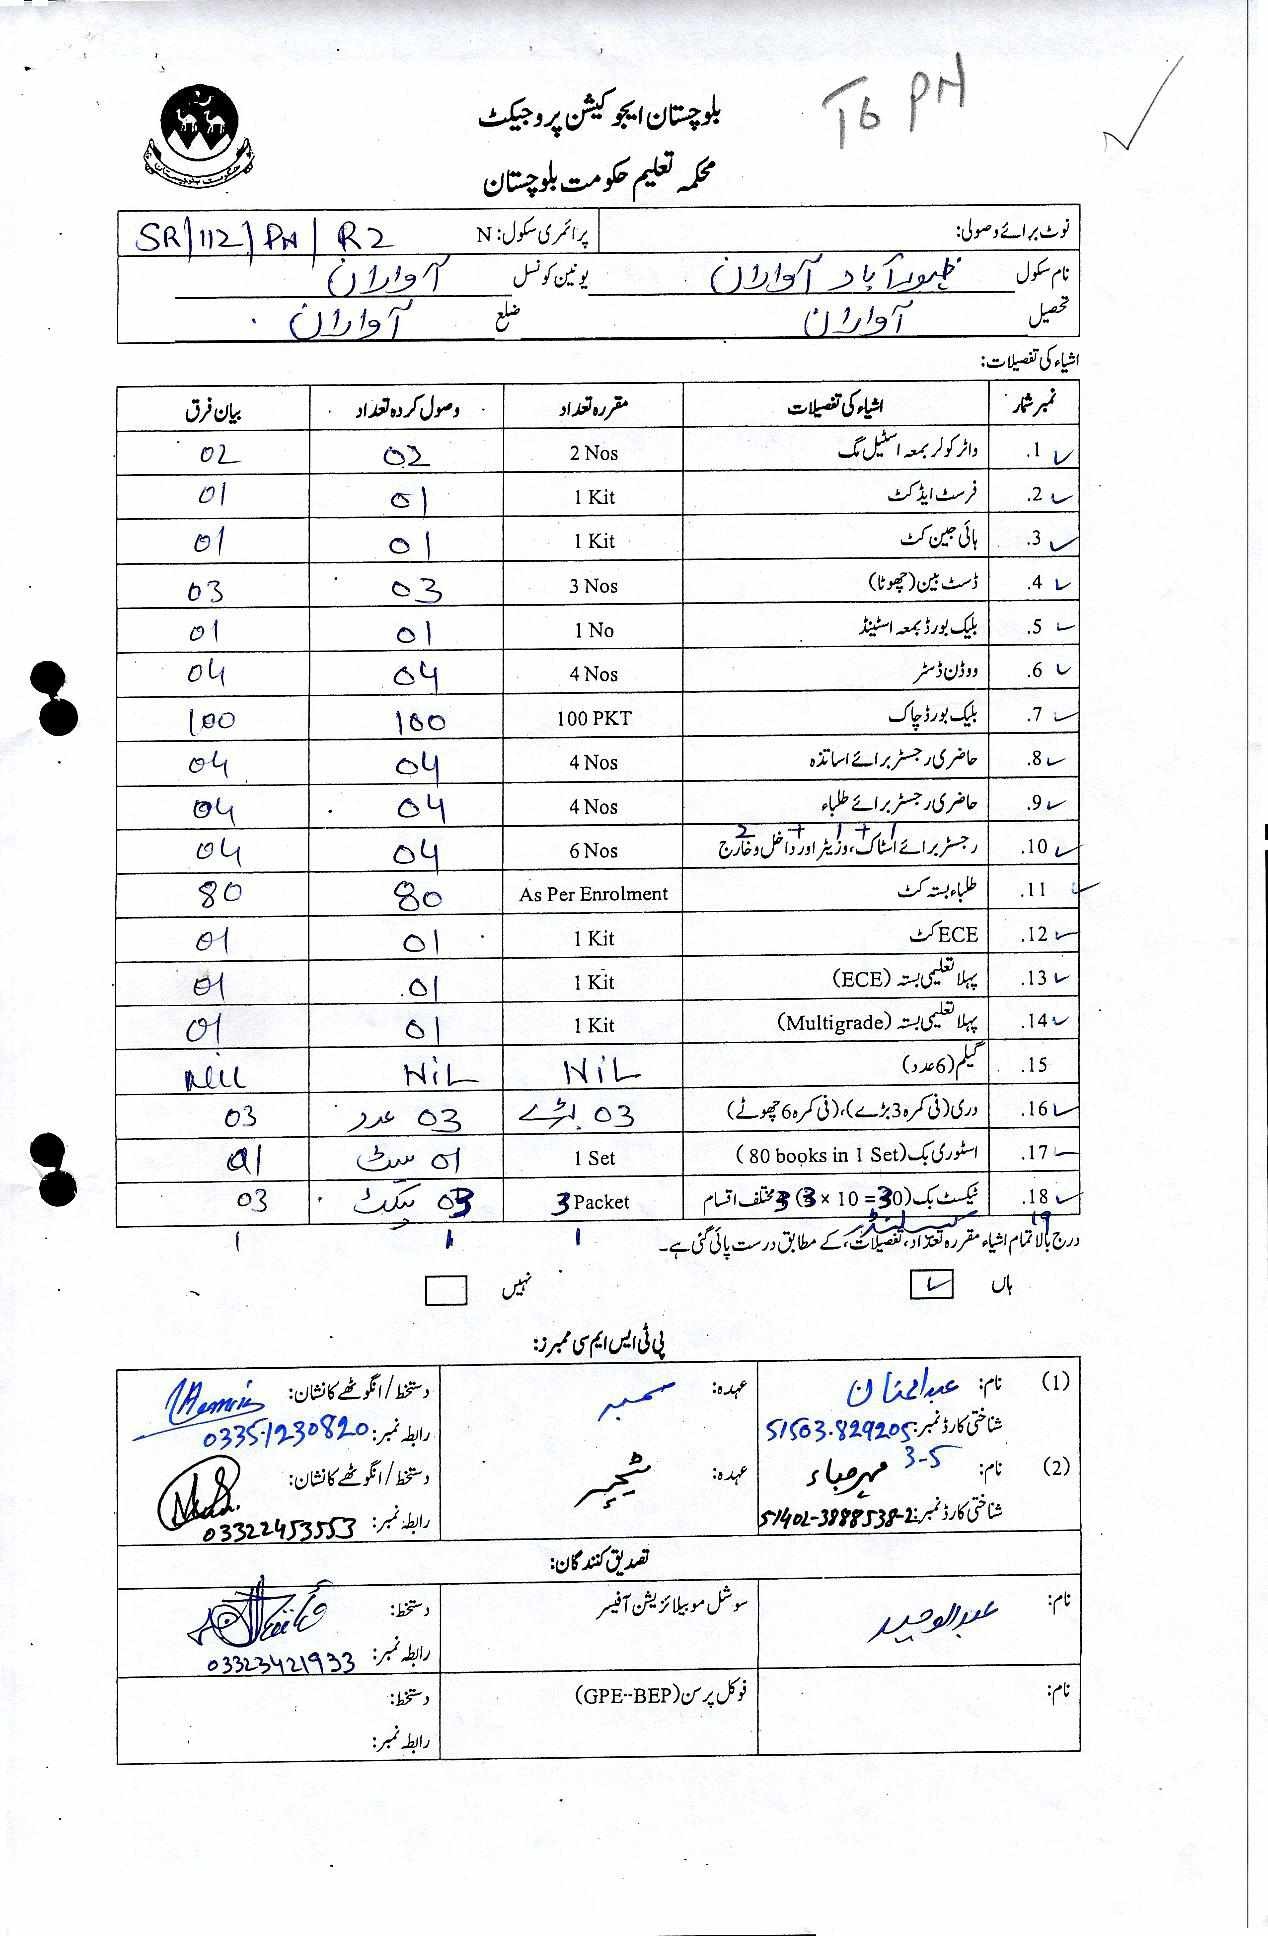 T6 PN
بلوچستان ایجوکیشن پروجیکٹ
محکمہ تعلیم حکومت بلوچستان
نوٹ برائے وصولی: پرائمری سکول: N SR/112/PN/R2
نام سکول ظہور آباد آواران یونین کونسل آواران
تحصیل آواران ضلع آواران
اشیاء کی تفصیلات:
نمبر شمار اشیاء کی تفصیلات مقررہ تعداد وصول کردہ تعداد بیان فرق
1. واٹر کولر بمعہ اسٹیل مگ 2 Nos 02 02
2. فرسٹ ایڈ کٹ 1 Kit 01 01
3. ہائی جین کٹ 1 Kit 01 01
4. ڈسٹ بین (چھوٹا) 3 Nos 03 03
5. بلیک بورڈ بمعہ اسٹینڈ 1 No 01 01
6. ووڈن ڈسٹر 4 Nos 04 04
7. بلیک بورڈ چاک 100 PKT 100 100
8. حاضری رجسٹر برائے اساتذہ 4 Nos 04 04
9. حاضری رجسٹر برائے طلباء 4 Nos 04 04
2 + 1 + 1
10. رجسٹر برائے اسٹاک، وزیٹر اور داخل و خارج 6 Nos 04 04
11. طلباء بستہ کٹ As Per Enrolment 80 80
12. ECE کٹ 1 Kit 01 01
13. پہلا تعلیمی بستہ (ECE) 1 Kit 01 01
14. پہلا تعلیمی بستہ (Multigrade) 1 Kit 01 01
15. گیلم (6 عدد) NiL NiL Nill
16. دری (فی کمرہ 3 بڑے)، (فی کمرہ 6 چھوٹے) 03 بڑے 03 عدد 03
17. اسٹوری بک (80 books in 1 Set) 1 Set 01 سیٹ 01
18. ٹیکسٹ بک (3 × 10 = 30) 3 مختلف اقسام 3 Packet 03 پیکٹ 03
19 1 1 1
درج بالا تمام اشیاء مقررہ تعداد، تفصیلات، کے مطابق درست پائی گئی ہے۔
ہاں نہیں
پی ٹی ایس ایم سی ممبرز:
(1) نام: عبدالحنان عہدہ: ممبر دستخط / انگوٹھے کا نشان:
شناختی کارڈ نمبر: 51503-8292053-5 رابطہ نمبر: 0335-1230820
(2) نام: مہر ضیاء عہدہ: ٹیچر دستخط / انگوٹھے کا نشان:
شناختی کارڈ نمبر: 51402-3888538-2 رابطہ نمبر: 03322453553
تصدیق کنندگان:
نام: عبدالوحید سوشل موبیلائزیشن آفیسر دستخط:
رابطہ نمبر: 03323421933
نام: فوکل پرسن (GPE-BEP) دستخط:
رابطہ نمبر: